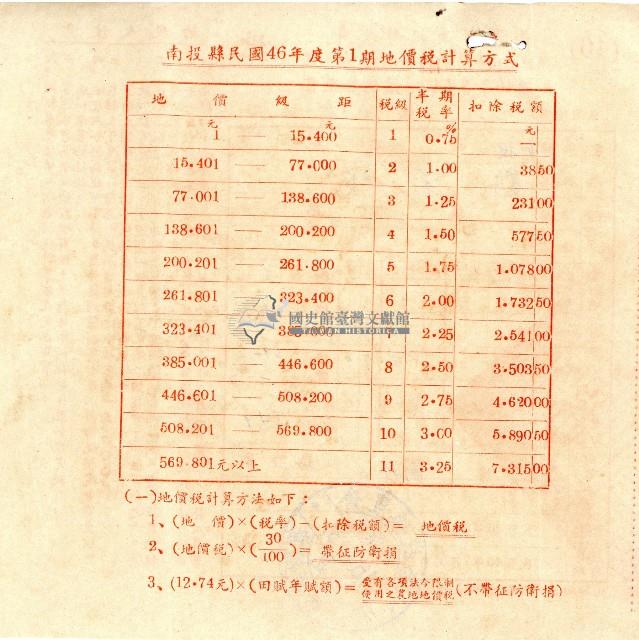 南投縣民國46年度第1期地價稅計算方式
地價級距 稅級 半期稅率 扣除稅額
元 元 % 元
1 — 15.400 1 0.75 —
15.401 — 77.000 2 1.00 3850
77.001 — 138.600 3 1.25 23100
138.601 — 200.200 4 1.50 57750
200.201 — 261.800 5 1.75 1.07800
261.801 — 323.400 6 2.00 1.73250
國史館臺灣文獻館
TAIWAN HISTORICA
323.401 — 2.25 2.54100
385.001 — 446.600 8 2.50 3.50350
446.601 — 508.200 9 2.75 4.62000
508.201 — 569.800 10 3.00 5.89050
569.801元以上 11 3.25 7.31500
(一)地價稅計算方法如下：
1、(地 價)×(稅率)-(扣除稅額)= 地價稅
2、(地價稅)×(30/100)= 帶征防衛捐
3、(12.74元)×(田賦年賦額)= 受有各項法令限制使用之農地地價稅(不帶征防衛捐)